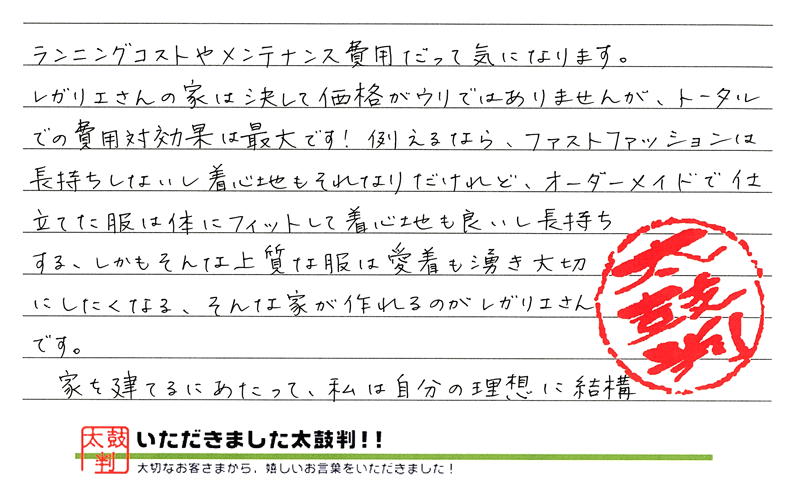 ランニングコストやメンテナンス費用だって気になります。
レガリエさんの家は決して価格がウリではありませんが、トータル
での費用対効果は最大です！例えるなら、ファストファッションは
長持ちしないし着心地もそれなりだけれど、オーダーメイドで仕
立てた服は体にフィットして着心地も良いし長持ち
する、しかもそんな上質な服は愛着も湧き大切
にしたくなる、そんな家が作れるのがレガリエさん
です。
家を建てるにあたって、私は自分の理想に結構
太鼓判
太鼓判
いただきました太鼓判!!
大切なお客さまから、嬉しいお言葉をいただきました！